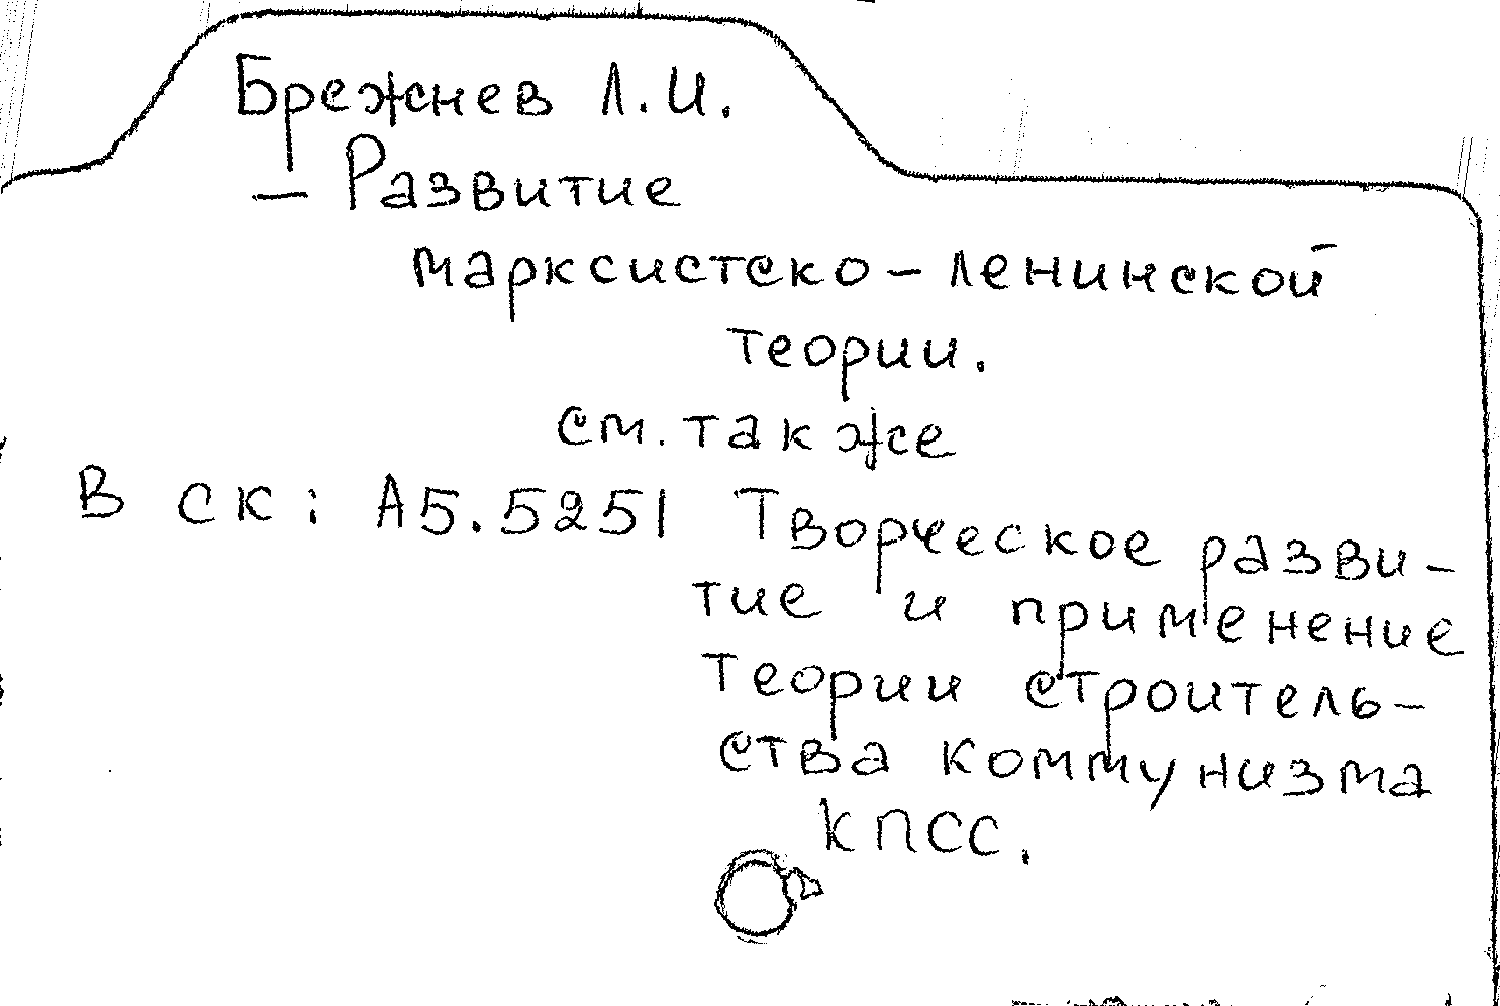 Брежнев Л.И.
— Развитие
марксистско-ленинской
теории.
см. также
В СК: А5.5251 Творческое разви-
тие и применение
теории строитель-
ства коммунизма
КПСС.